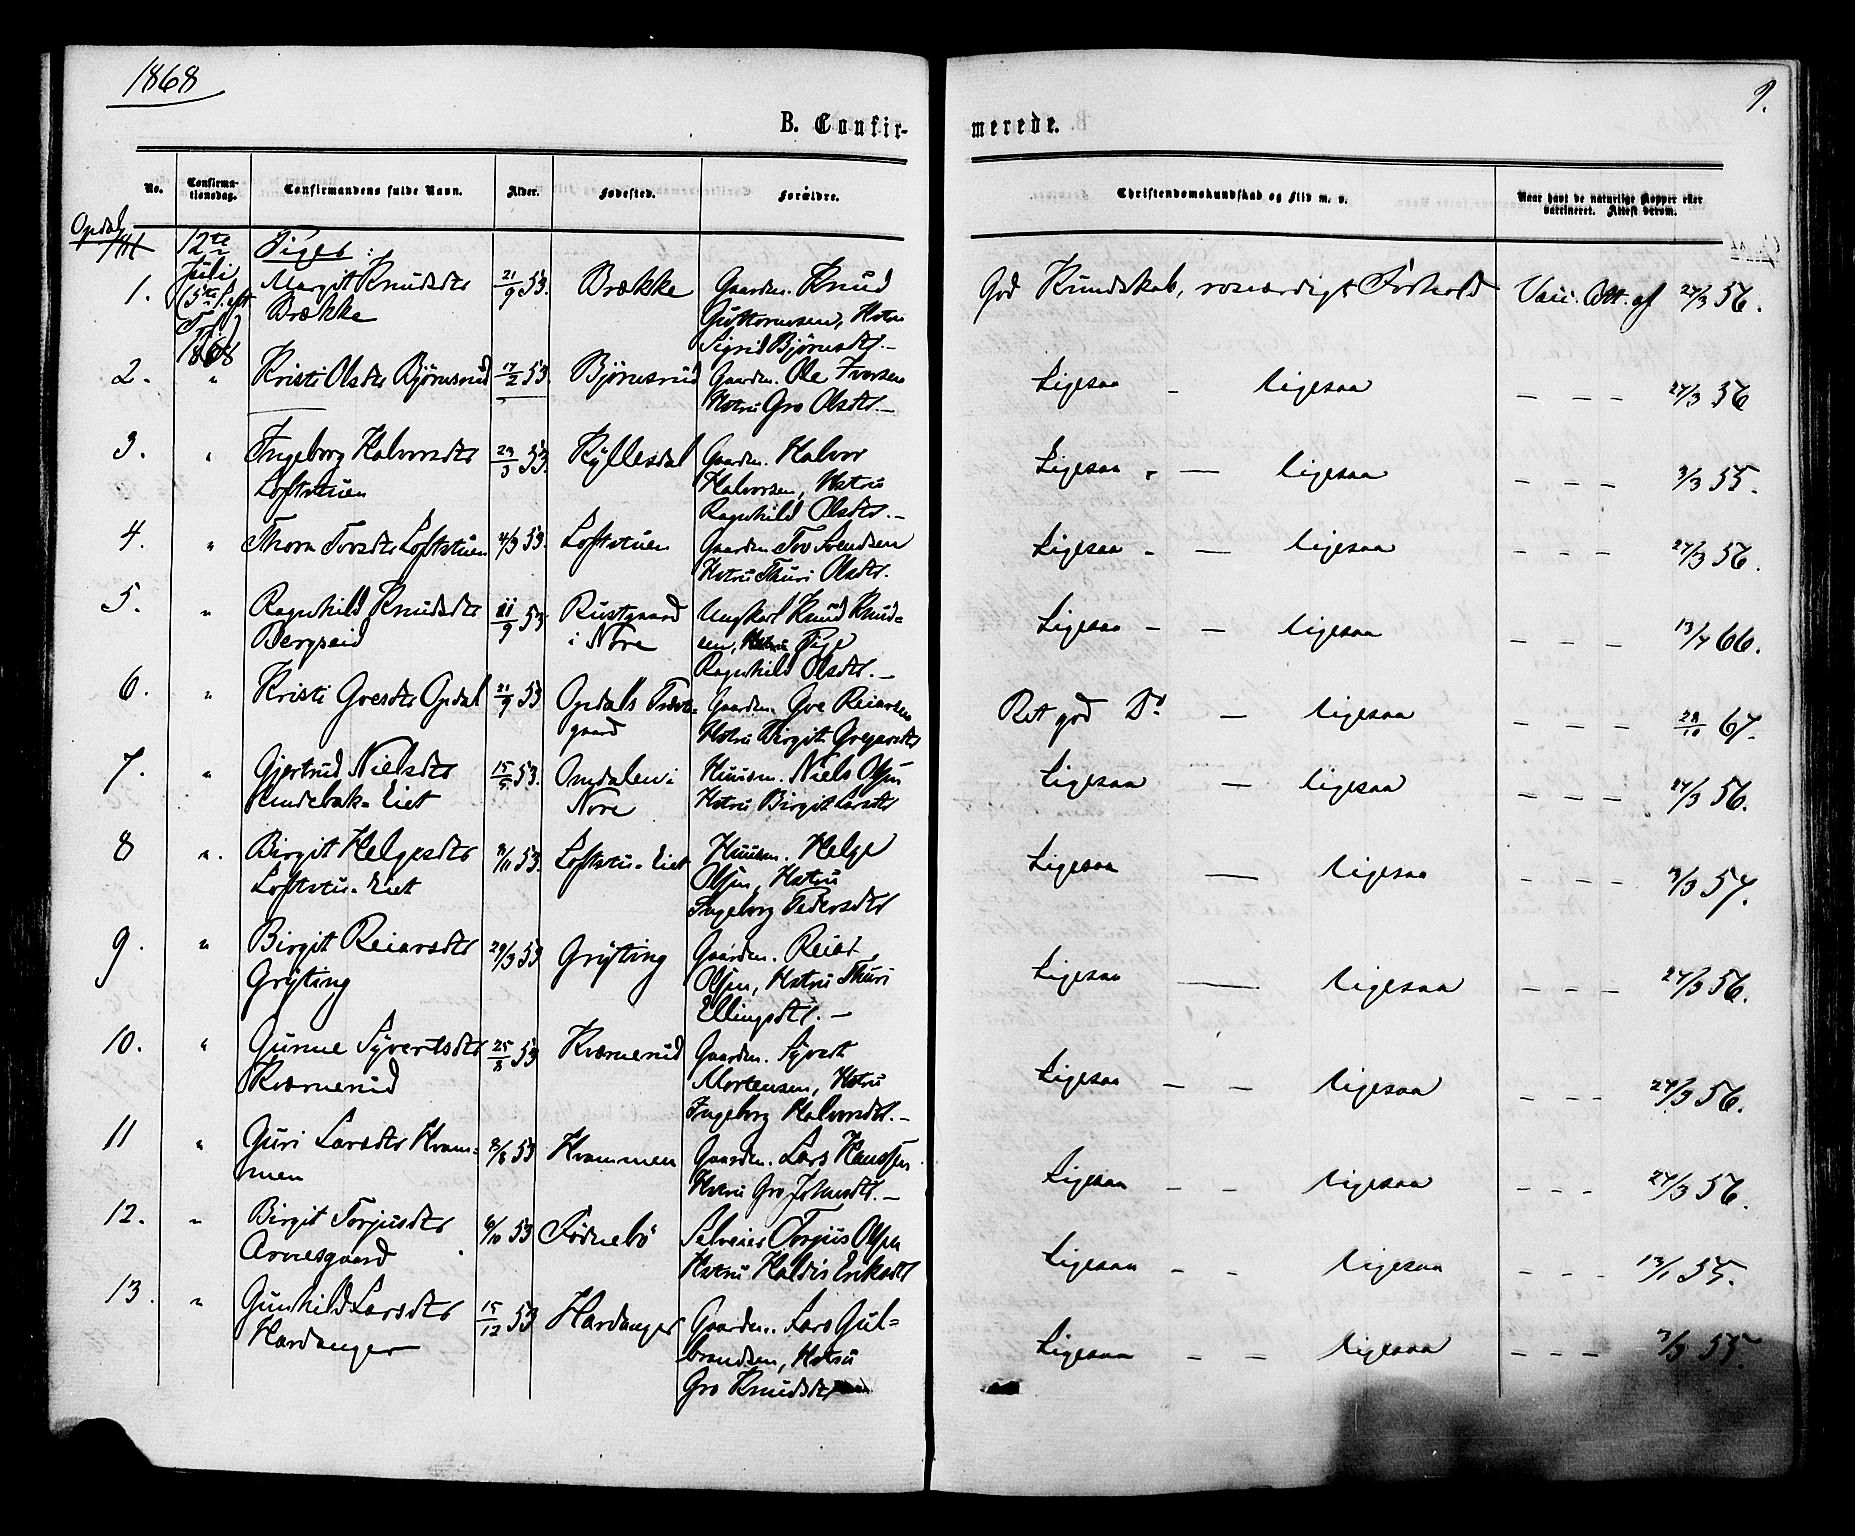 1868
9.
B. Confir-
merede.
No.
Confirma-
tionsdag.
Confirmandens fulde Navn.
Alder.
Fødested.
Forældre.
Christendomskundskab og Flid m. v.
Naar havt de naturlige Kopper eller
vaccineret. Attest derom.
Opdal
12te Juli
(5te S. eft.
Tref.)
1868
Piger:
1. Margit Knudsdtr
Brække
21/9 53. Brække
Gaardm. Knud
Guttormsen, Hstru
Sigrid Bjørnsdtr. –
God Kundskab, rosværdigt Forhold
Vacc. Att. af 27/3 56.
2. " Kristi Olsdtr Bjørnsrud 17/2 53. Bjørnsrud
Gaardm. Ole Iversen
Hstru Gro Olsdtr. –
Ligesaa - ligesaa
– – – 27/3 56
3. " Ingeborg Halvorsdtr
Loftstuen
29/3 53. Kyllesdal
Gaardm. Halvor
Halvorsen, Hstru
Ragnhild Olsdtr. –
Ligesaa - — ligesaa
– – – 3/3 55.
4. " Thora Torsdtr Loftstuen 4/3 53. Loftstuen
Gaardm. Tov Svendsen
Hstru Thuri Olsdtr.
Ligesaa - — ligesaa
– – – 27/3 56.
5. " Ragnhild Knudsdtr
Bergseid
11/9 53 Rustgaard
i Nore
Ungkarl Knud Knud-
sen, Pige
Ragnhild Olsdtr. –
Ligesaa - — ligesaa
– – – 13/4 66.
6. " Kristi Gvesdtr Opdal 21/9 53 Opdals Præste-
gaard
Gaardm. Gve Reiarsen
Hstru Birgit Gregarsdtr
Ret god Do — ligesaa
– – – 28/10 67.
7. " Gjertrud Nielsdtr
Kindebak-Eiet
15/5 53. Omdalen i
Nore
Huusm. Niels Olsen
Hstru Birgit Larsdtr
Ligesaa — ligesaa
– – – 27/3 56.
8 ". Birgit Helgesdtr
Loftstu-Eiet
9/11 53. Loftstu-Eiet
Huusm. Helge
Olsen, Hstru
Ingeborg Pedersdtr
Ligesaa — ligesaa
– – – 3/3 57.
9. " Birgit Reiarsdtr
Grøting
29/3 53 Grøting
Gaardm. Reiar
Olsen, Hstru Thuri
Ellingsdtr. –
Ligesaa — ligesaa
– – – 27/3 56.
10. " Gunne Syvertsdtr
Kværnerud
25/8 53 Kværnerud
Gaardm. Syvert
Mortensen, Hstru
Ingeborg Halvorsdtr. –
Ligesaa – – ligesaa
– – – 27/3 56.
11 " Guri Larsdtr Hvam-
men
8/8 53 Hvammen
Gaardm. Lars Hanssen
Hstru Gro Johnsdtr. –
Ligesaa – – ligesaa
– – – 27/3 56.
12. " Birgit Torjusdtr
Arnesgaard
6/10 53 Fødnebø
Selveier Torjus Olsen
Hstru Haldis Eriksdtr
Ligesaa – – ligesaa
– – – 13/1 55.
13. " Gunhild Larsdtr
Hardanger
15/12 53 Hardanger
Gaardm. Lars Gul-
brandsen, Hstru
Gro Knudsdtr
Ligesaa – – ligesaa
– – – 3/3 55.